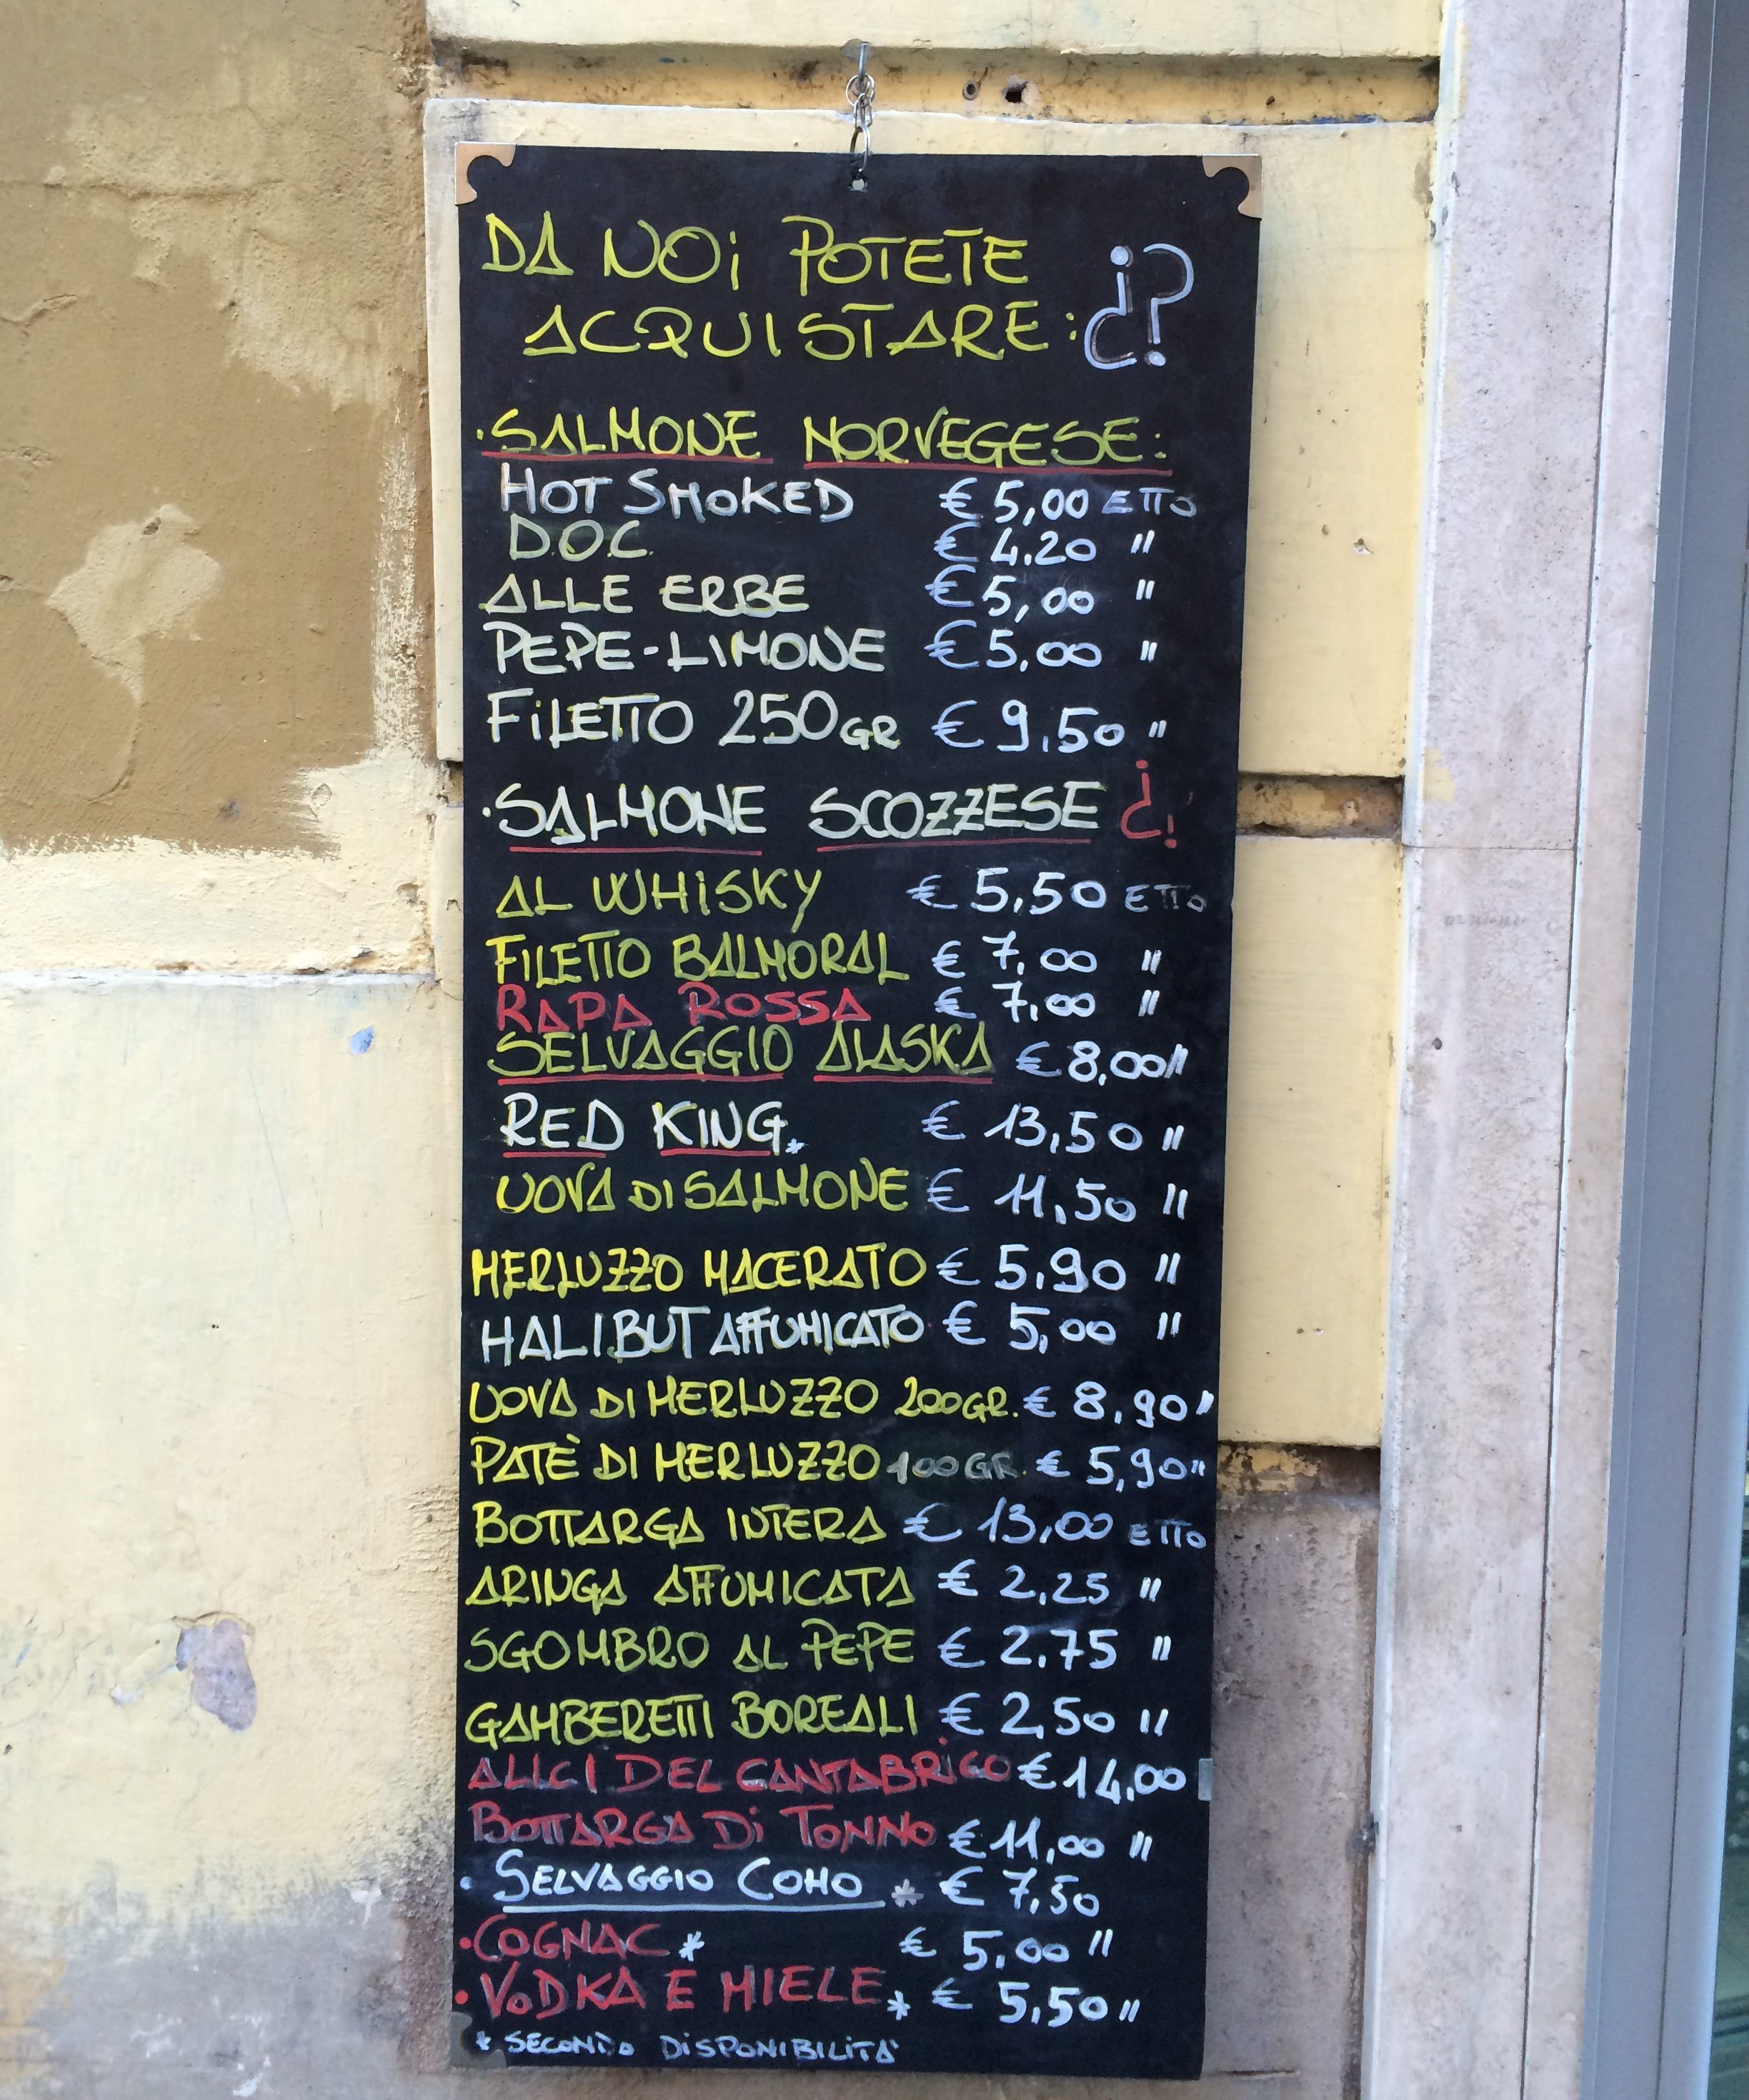 DA NOi POTETE
ACQUISTARE: ¿?
·SALMONE NORVEGESE:
HOT SMOKED € 5,00 ETTO
DOC € 4.20 "
ALLE ERBE € 5,00 "
PEPE-LIMONE € 5,00 "
FiLETTO 250GR € 9,50 "
·SALMONE SCOZZESE ¿!
AL WHiSKY € 5,50 ETTO
FILETTO BALMORAL € 7,00 "
RAPA ROSSA € 7,00 "
SELVAGGIO ALASKA € 8,00 "
RED KING * € 13,50 "
UOVA DI SALMONE € 11,50 "
MERLUZZO MACERATO € 5,90 "
HALIBUT AFFUMICATO € 5,00 "
UOVA DI MERLUZZO 200GR. € 8,90 "
PATÈ DI MERLUZZO 100GR. € 5,90 "
BOTTARGA INTERA € 13,00 ETTO
ARINGA AFFUMICATA € 2,25 "
SGOMBRO AL PEPE € 2.75 "
GAMBERETTI BOREALI € 2,50 "
ALICI DEL CANTABRiCO € 14,00
BOTTARGA Di TONNO € 11,00 "
· SELVAGGIO COHO * € 7,50
·COGNAC * € 5,00 "
·VODKA E MIELE * € 5,50 "
* SECONDO DiSPONIBILITA'